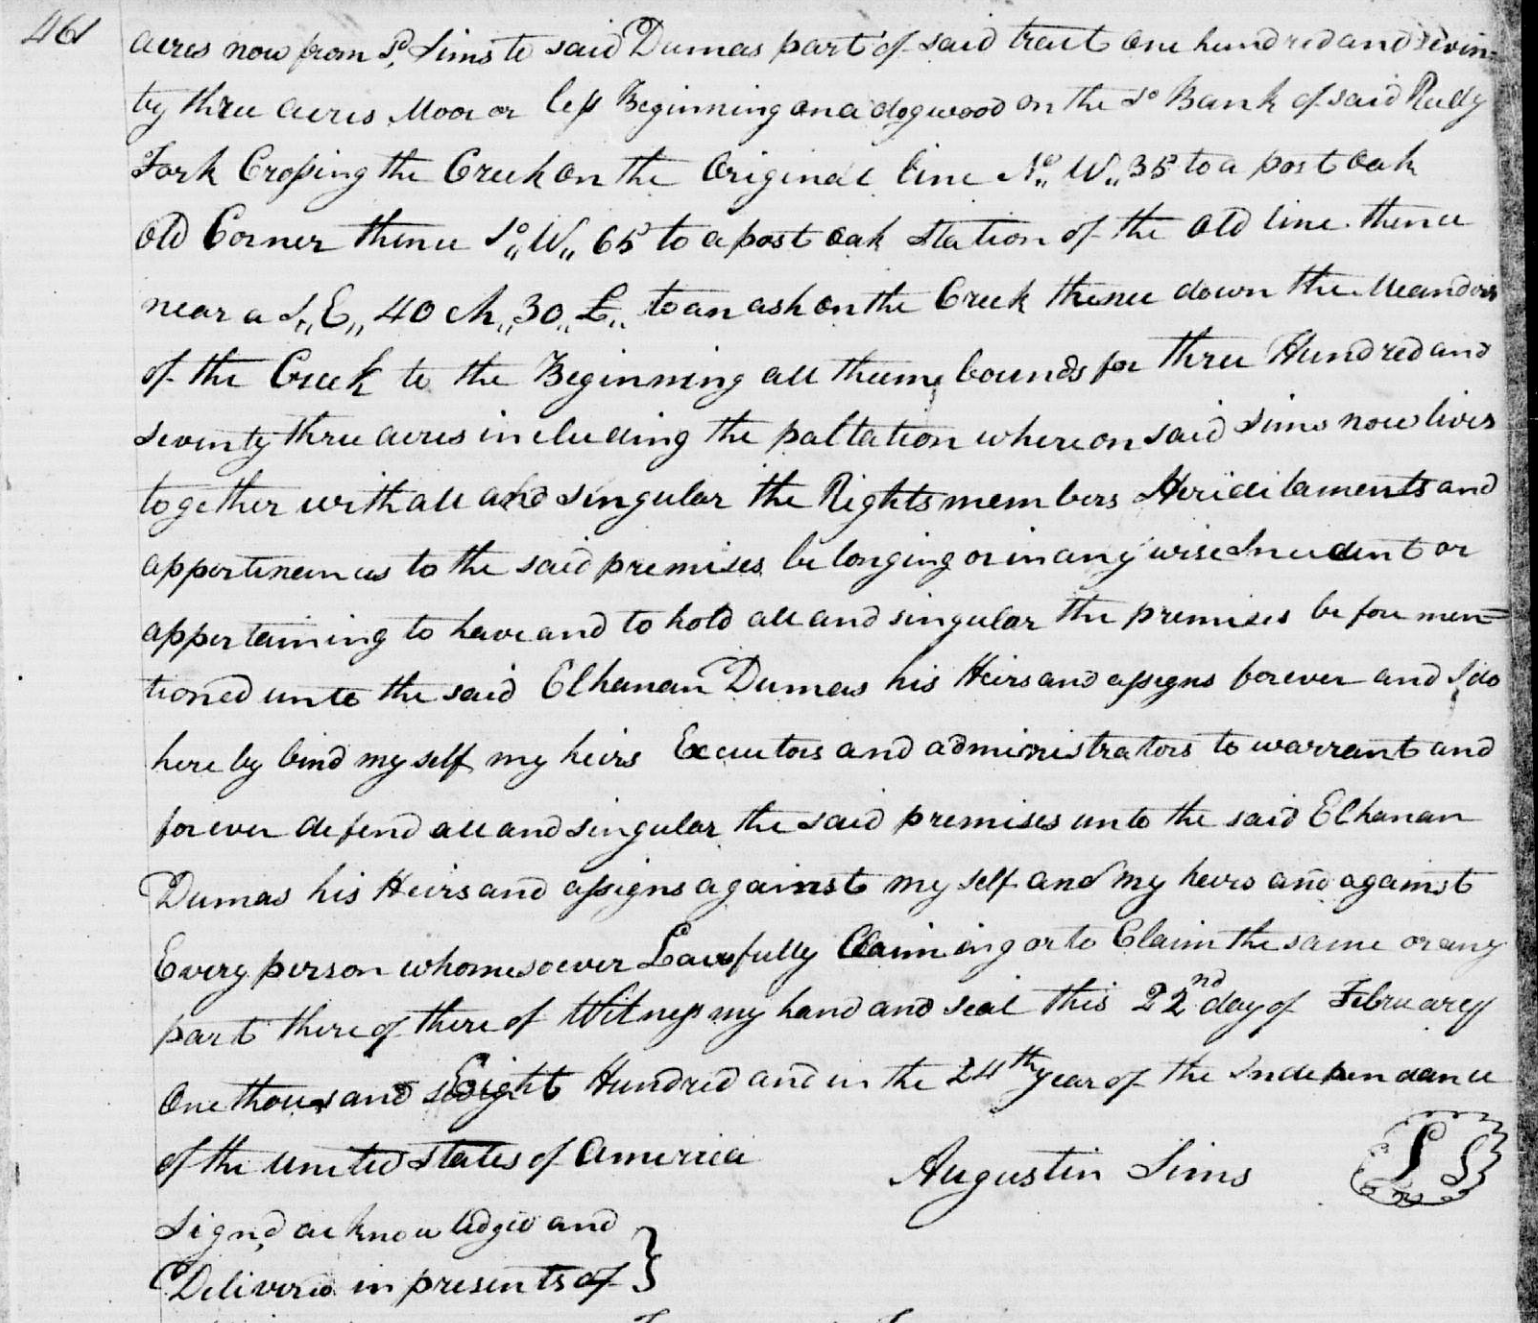 461
acres now from sd. Sims to said Dumas part of said tract one hundred and seven=
ty three acres Moor or less Beginning on a dogwood on the So Bank of said Reedy
Fork Crossing the Creek on the Original line No,, W,, 35 to a post Oak
old Corner thence So,, W,, 65 to a post oak station of the old line thence
near a S,, E,, 40 ch,, 30,, L,, to an ash on the Creek thence down the Meanders
of the Creek to the Beginning all theemg bounds for three Hundred and
seventy three acres including the paltation whereon said Sims now lives
together with all and singular the Rights members Heriditaments and
appertenances to the said premises belonging or in any wise Incident or
appertaining to have and to hold all and singular the premises before men=
tioned unto the said Elhanan Dumas his Heirs and assigns forever and I do
here by bind my self my heirs Executors and administrators to warrant and
forever defend all and singular the said premises unto the said Elhanan
Dumas his Heirs and assigns against my self and my heirs and against
Every person whomesoever Lawfully Claiming or to Claim the same or any
part there of there of Witness my hand and seal this 22nd day of February
One thousand Eight Hundred and in the 24th year of the Independance
of the United States of America
Augustin Sims L S
Signd acknowledged and
Deliverd in presents of